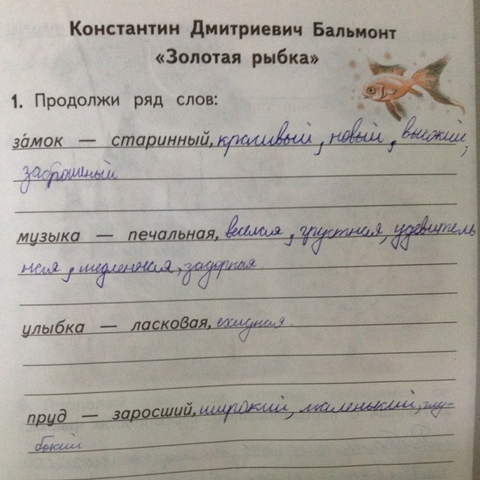 Константин Дмитриевич Бальмонт
«Золотая рыбка»
1. Продолжи ряд слов:
за́мок — старинный, красивый, новый, высокий,
заброшеный
музыка — печальная, веселая, грустная, удевитель
ная, медленная, задорная
улыбка — ласковая, ехидная.
пруд — заросший, широкий, маленький, глу-
бокий